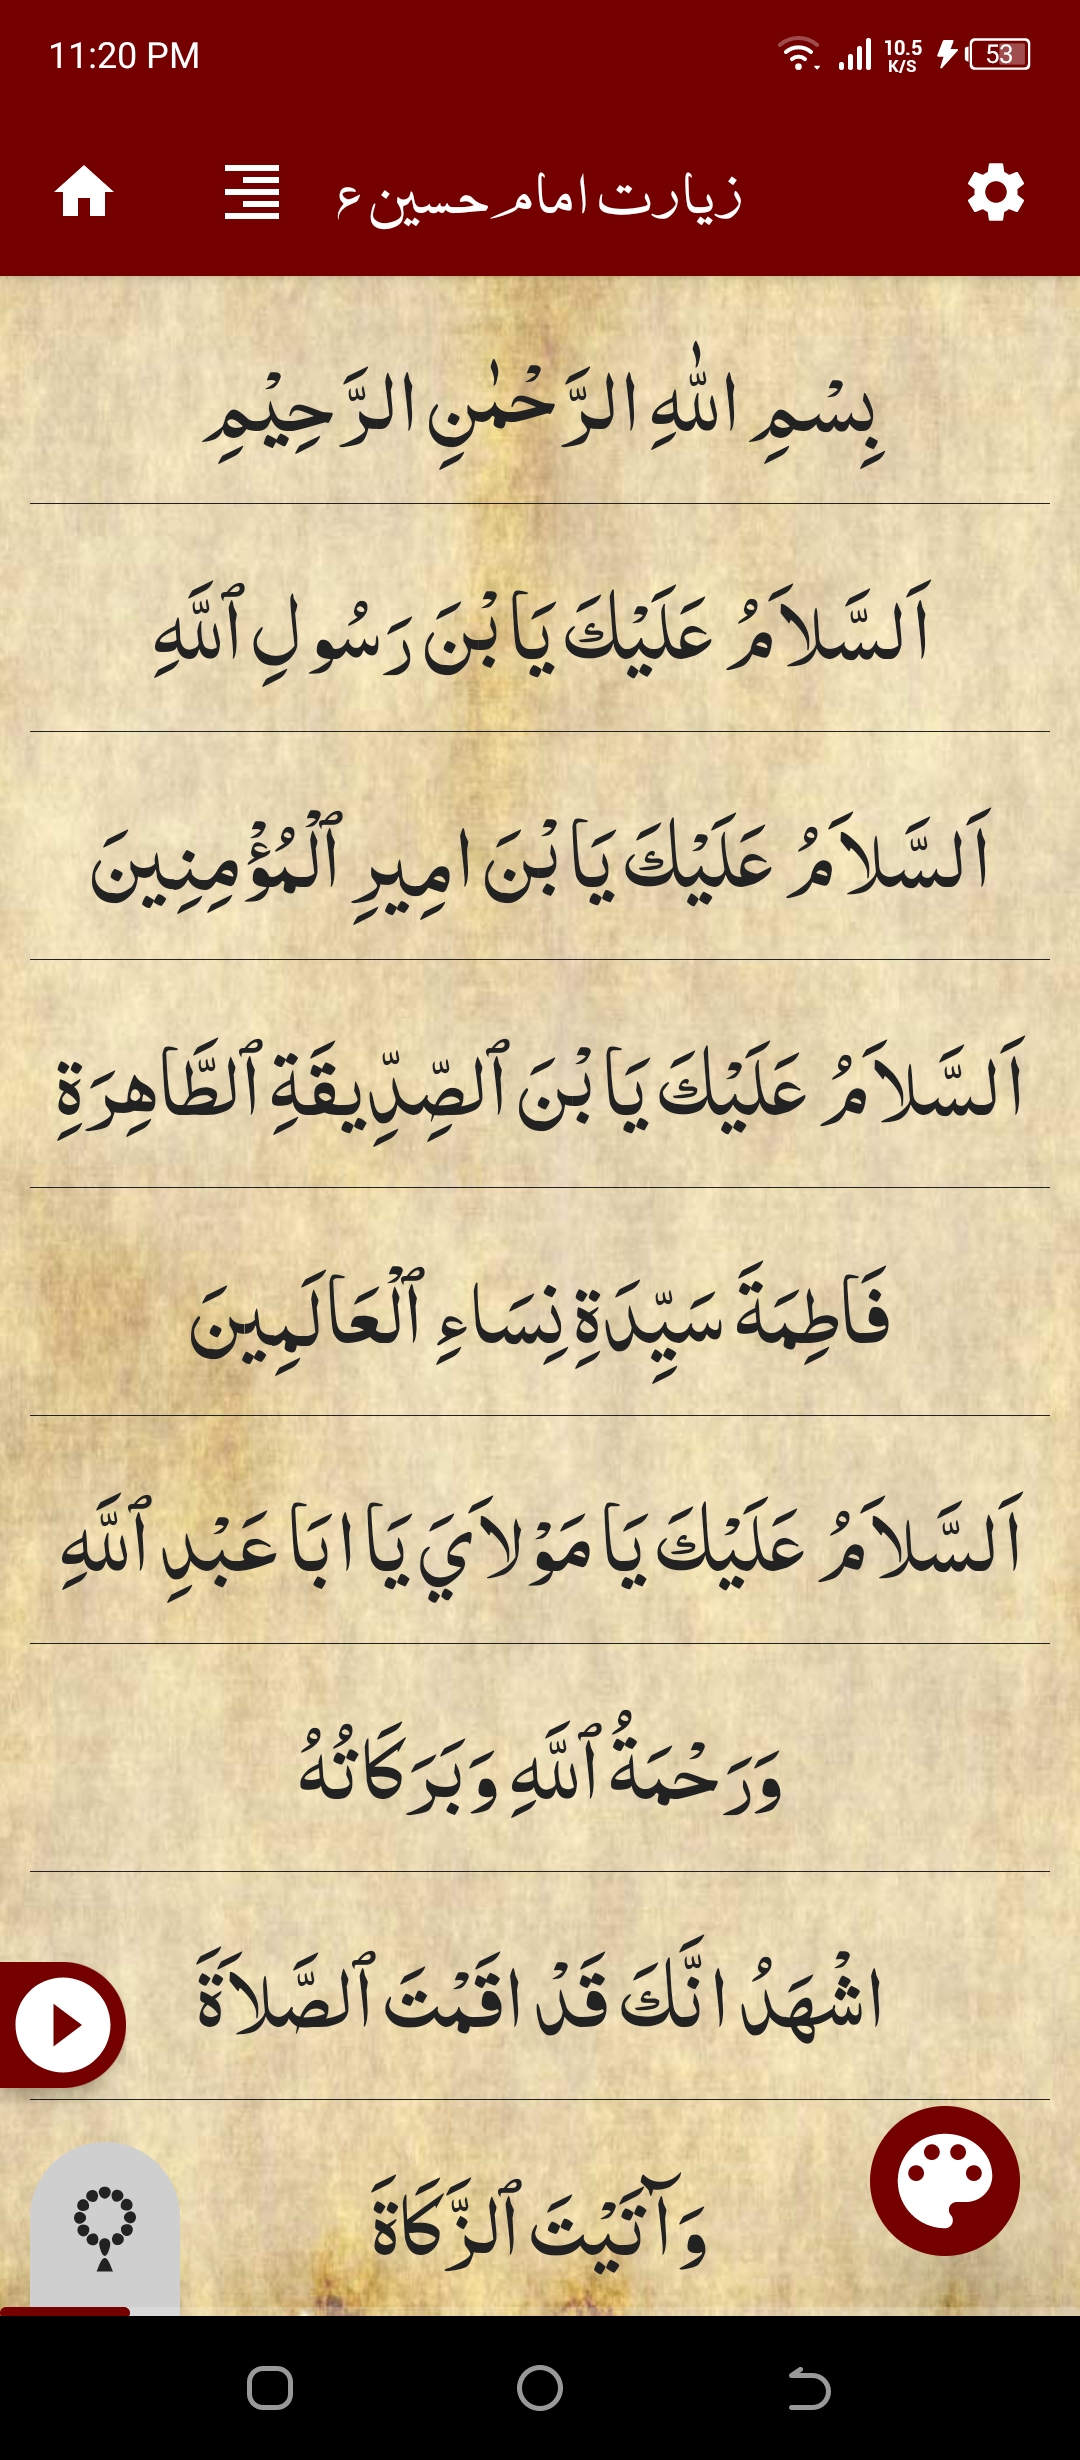 11:20 PM 10.5 K/S 53
زیارت امام حسین ع
بِسْمِ اللّٰهِ الرَّحْمٰنِ الرَّحِيْمِ
اَلسَّلاَمُ عَلَيْكَ يَا بْنَ رَسُولِ ٱللَّهِ
اَلسَّلاَمُ عَلَيْكَ يَا بْنَ امِيرِ ٱلْمُؤْمِنِينَ
اَلسَّلاَمُ عَلَيْكَ يَا بْنَ ٱلصِّدِّيقَةِ ٱلطَّاهِرَةِ
فَاطِمَةَ سَيِّدَةِ نِسَاءِ ٱلْعَالَمِينَ
اَلسَّلاَمُ عَلَيْكَ يَا مَوْلاَيَ يَا ابَا عَبْدِ ٱللَّهِ
وَرَحْمَةُ ٱللَّهِ وَبَرَكَاتُهُ
اشْهَدُ انَّكَ قَدْ اقَمْتَ ٱلصَّلاَةَ
وَآتَيْتَ ٱلزَّكَاةَ